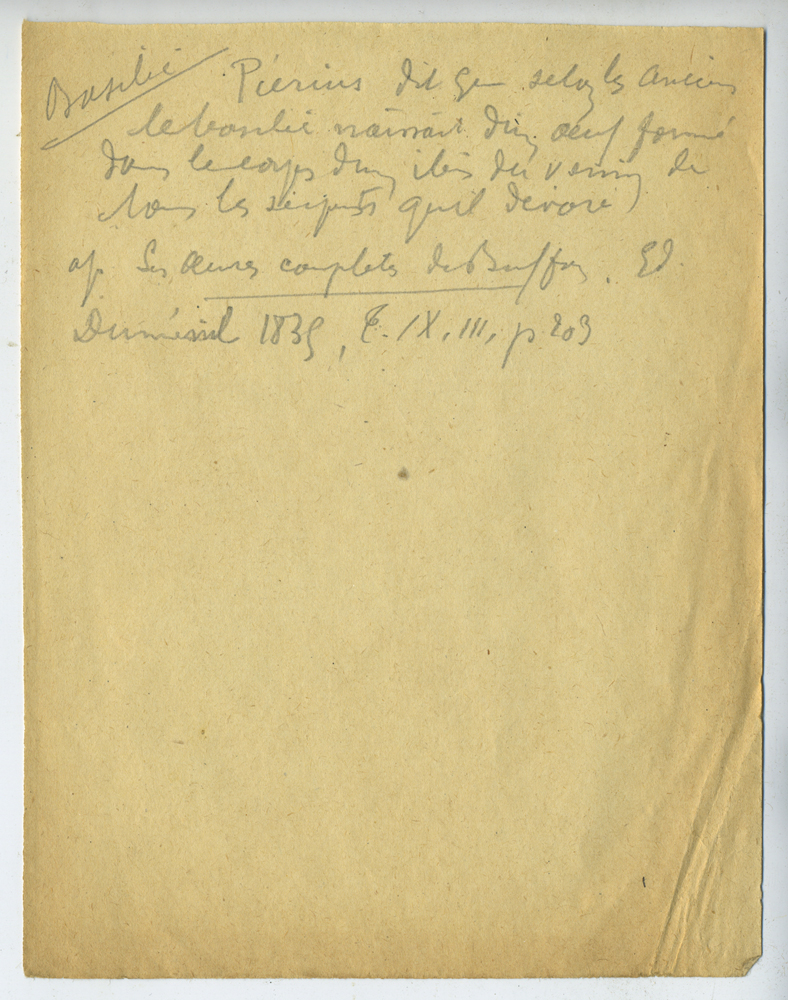 Basilic
Piérius dit que selon les Anciens
le basilic naissait d'un œuf formé
dans le corps d'un ibis du venin de
tous les serpents qu'il dévore)
ap. Les Œuvres complètes de Buffon. Ed.
Duménil 1835, T. IX, III, p 203